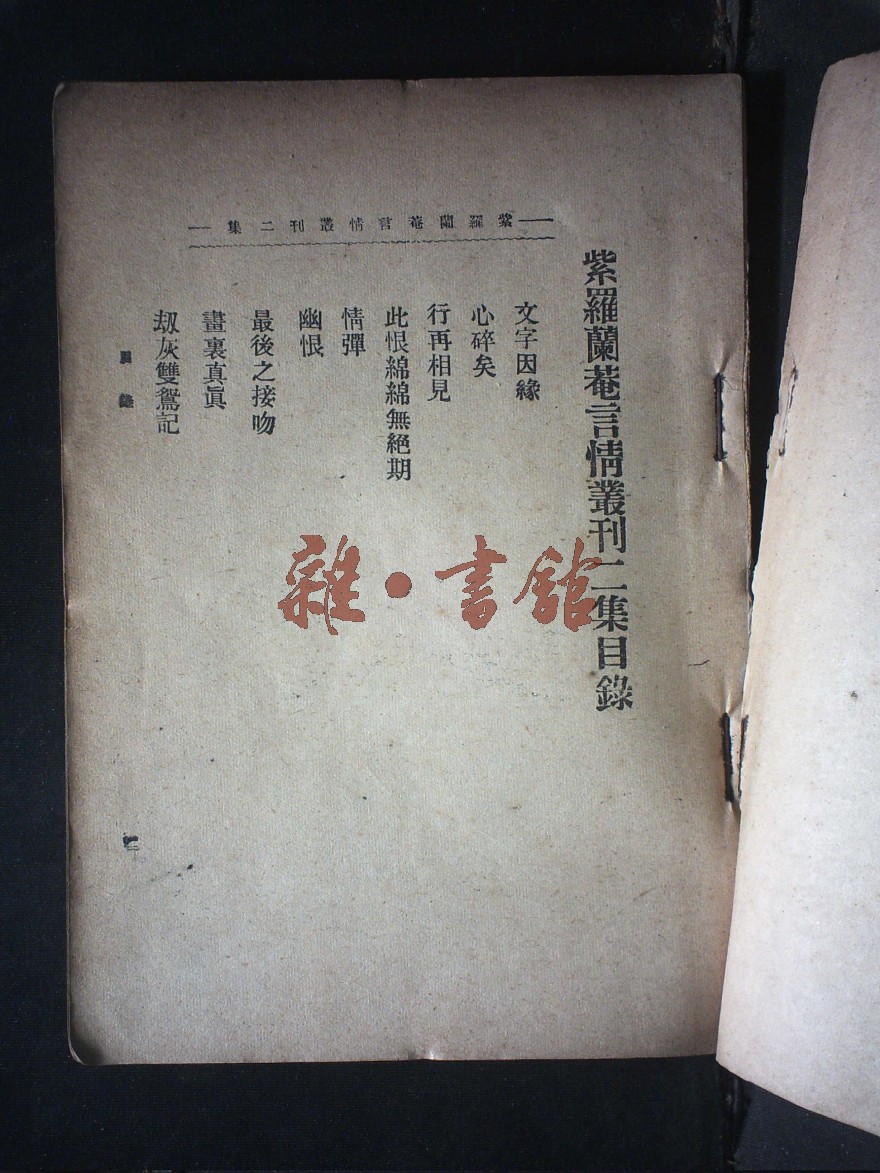 紫羅蘭菴言情叢刊二集
紫羅蘭菴言情叢刊二集目錄
文字因緣
心碎矣
行再相見
此恨綿綿無絕期
情彈
幽恨
最後之接吻
畫裏真眞
刼灰雙鴛記
目錄
一
雜·書館